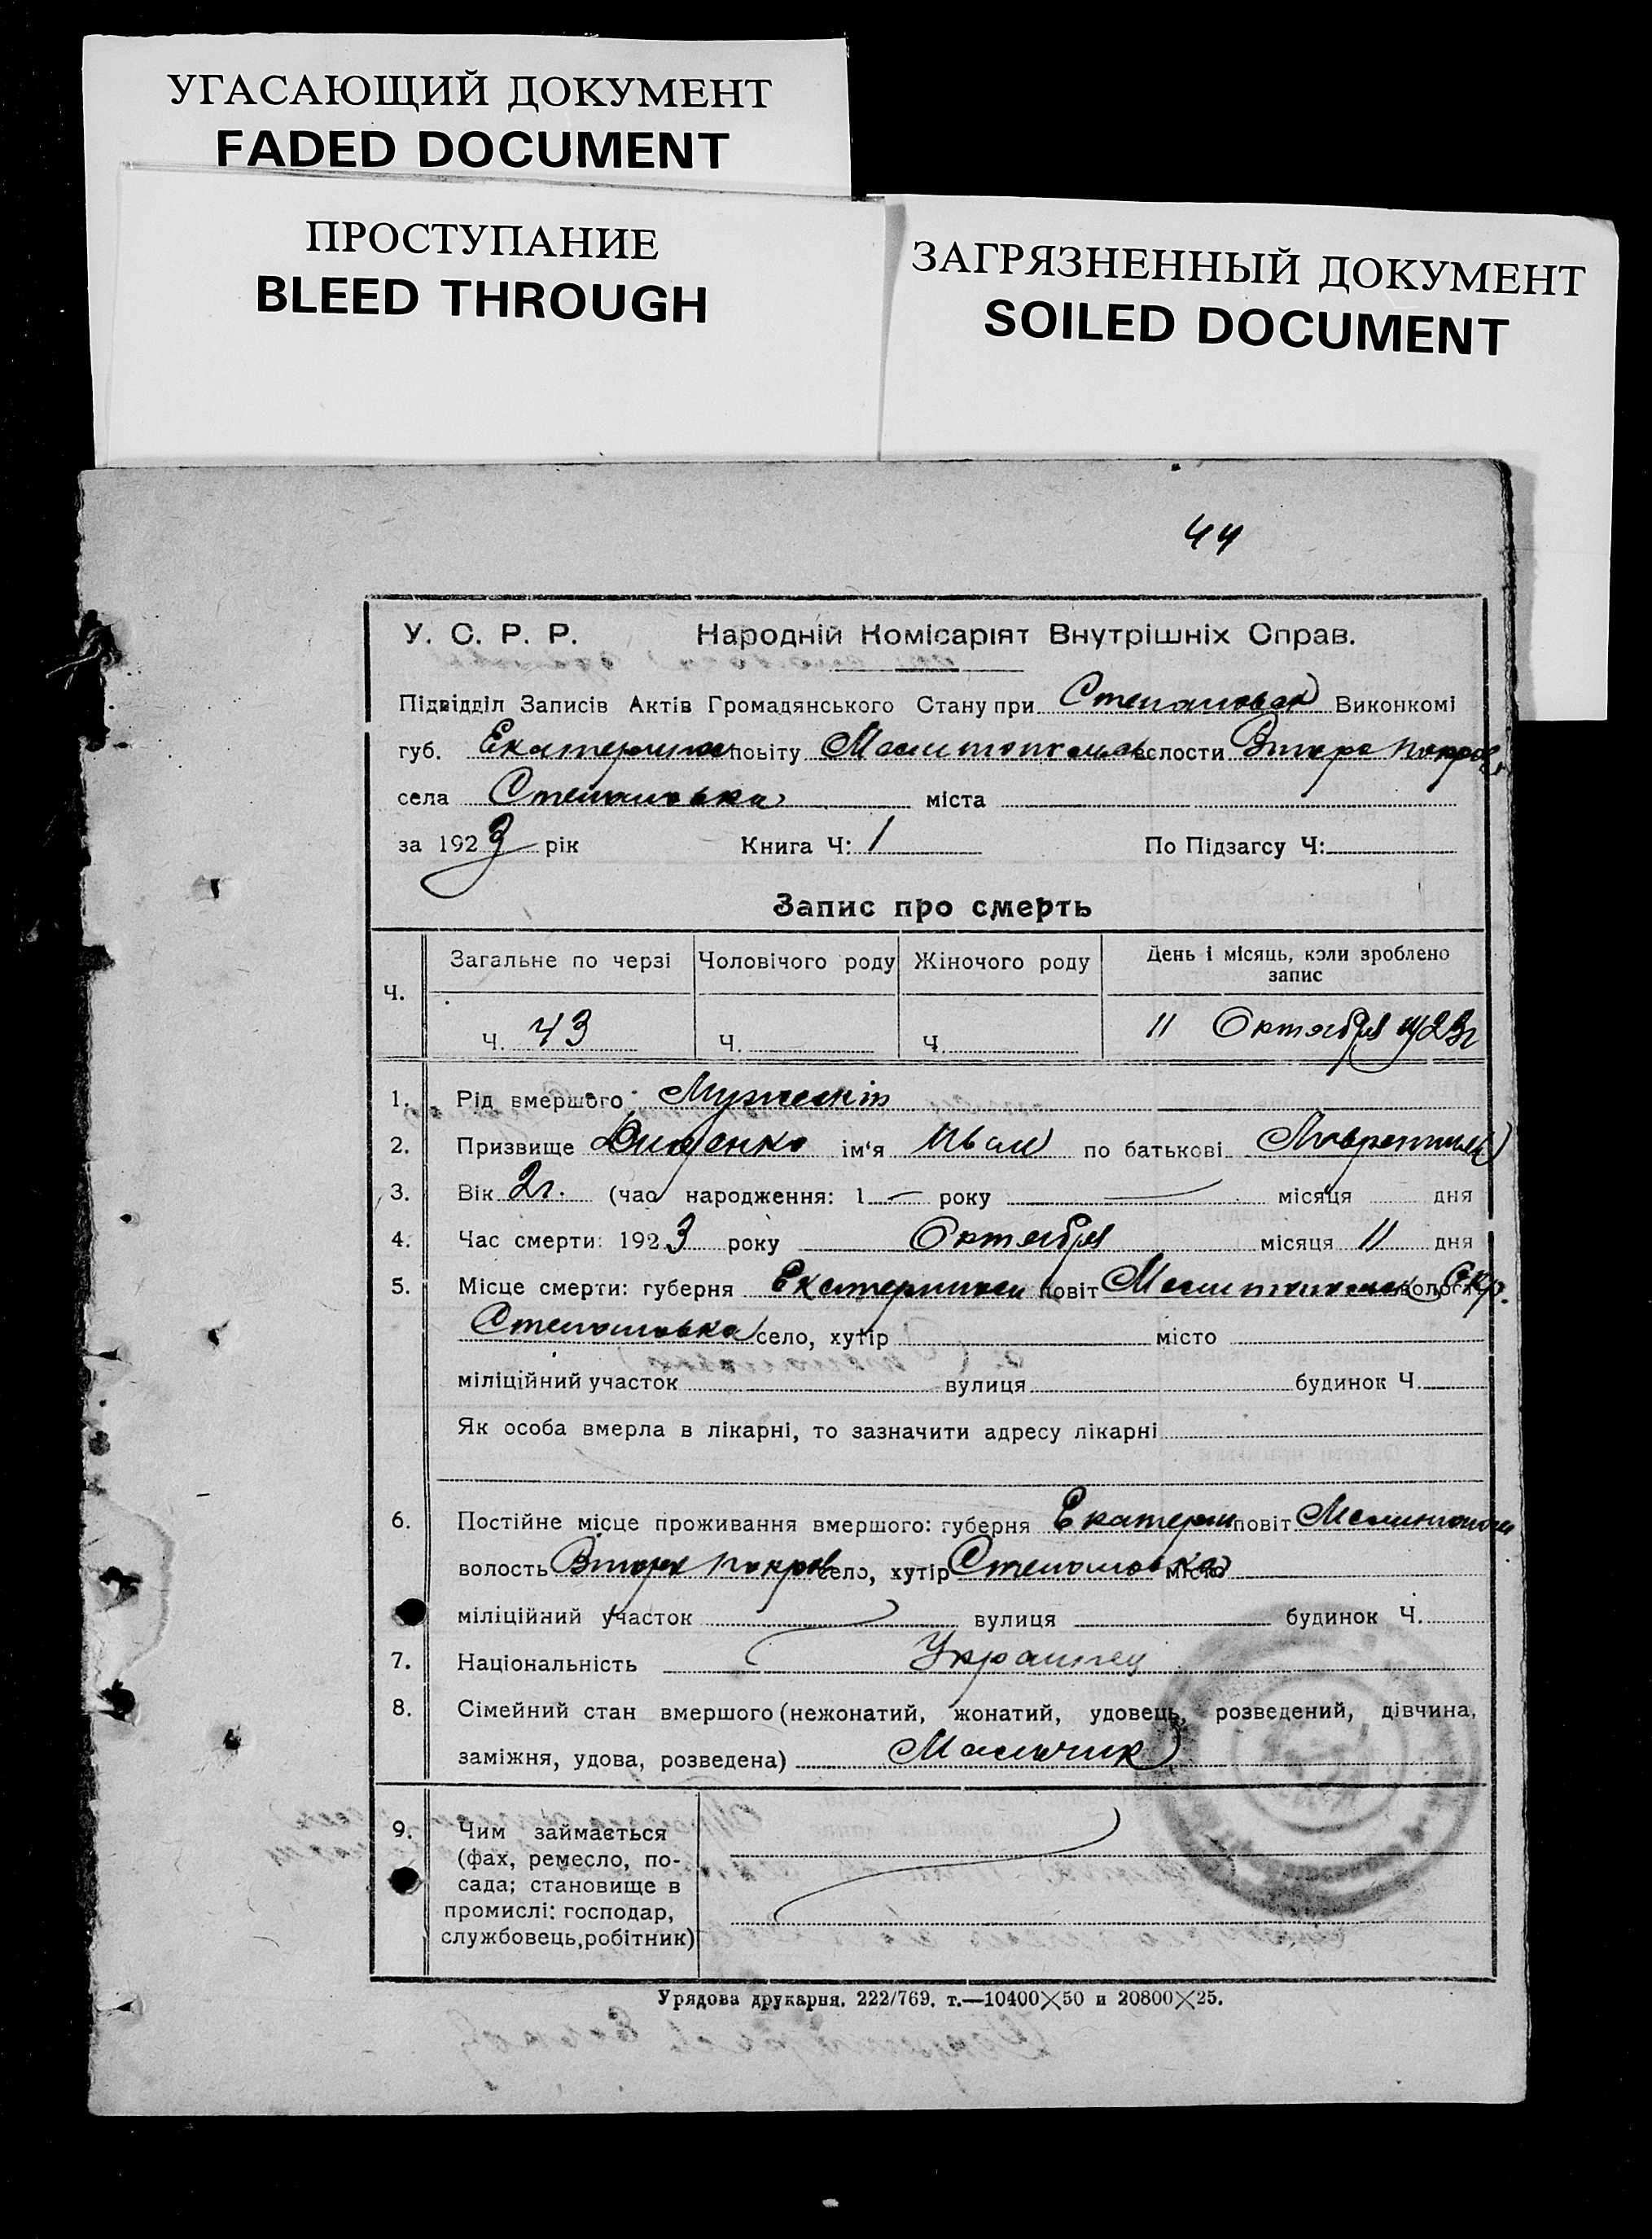 УГАСАЮЩИЙ ДОКУМЕНТ
FADED DOCUMENT
ПРОСТУПАНИЕ
BLEED THROUGH
ЗАГРЯЗНЕННЫЙ ДОКУМЕНТ
SOILED DOCUMENT
44
У. С. Р. Р. Народній Комісаріят Внутрішніх Справ.
Підвідділ Записів Актів Громадянського Стану при Степановск Виконкомі
губ. Екатеринос повіту Мелитопольск волости Второ покров.
села Степановка міста
за 1923 рік Книга Ч: 1 По Підзагсу Ч:
Запис про смерть
Ч. Загальне по черзі Чоловічого роду Жіночого роду День і місяць, коли зроблено запис
Ч. 43 Ч. Ч. 11 Октября 1923г
1. Рід вмершого: Мужский
2. Призвище ім'я Иван по батькові
3. Вік 2г. (час народження: 1 — року — місяця дня
4. Час смерти: 1923 року Октября місяця 11 дня
5. Місце смерти: губерня Екатеринос повіт Мелитопольск волость
Степановка село, хутір місто
міліційний участок вулиця будинок Ч.
Як особа вмерла в лікарні, то зазначити адресу лікарні
6. Постійне місце проживання вмершого: губерня Екатерин повіт Мелитопол
волость Второ покров село, хутір Степановка місто
міліційний участок вулиця будинок Ч.
7. Національність Украинец
8. Сімейний стан вмершого (нежонатий, жонатий, удовець, розведений, дівчина,
заміжня, удова, розведена) Мальчик
9. Чим займається
(фах, ремесло, по-
сада; становище в
промислі: господар,
службовець, робітник)
Урядова друкарня. 222/769. т.—10400×50 и 20800×25.